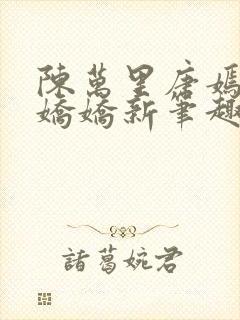 陳萬里唐嫣
嬌嬌新筆趣
諸葛婉君